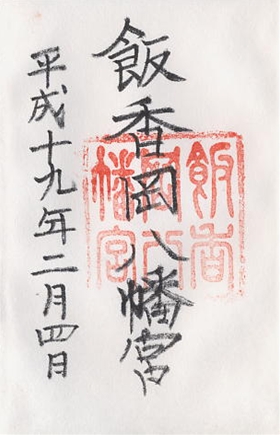 飯香岡八幡宮
平成十九年二月四日
飯香
岡八
幡宮